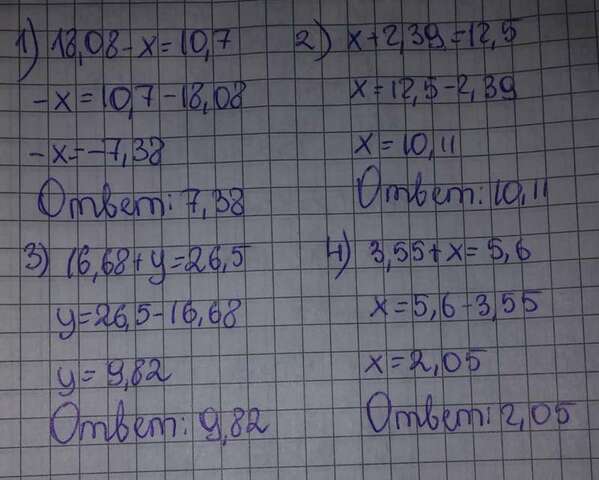 1) 18,08-x=10,7
-x=10,7-18,08
-x=-7,38
Ответ: 7,38
2) x+2,39=12,5
x=12,5-2,39
x=10,11
Ответ: 10,11
3) 16,68+y=26,5
y=26,5-16,68
y=9,82
Ответ: 9,82
4) 3,55+x=5,6
x=5,6-3,55
x=2,05
Ответ: 2,05